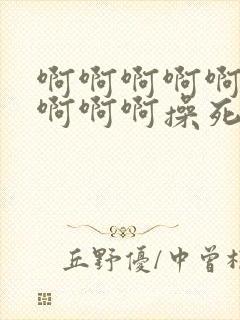 啊啊啊啊啊
啊啊啊操死
丘野優/中曾